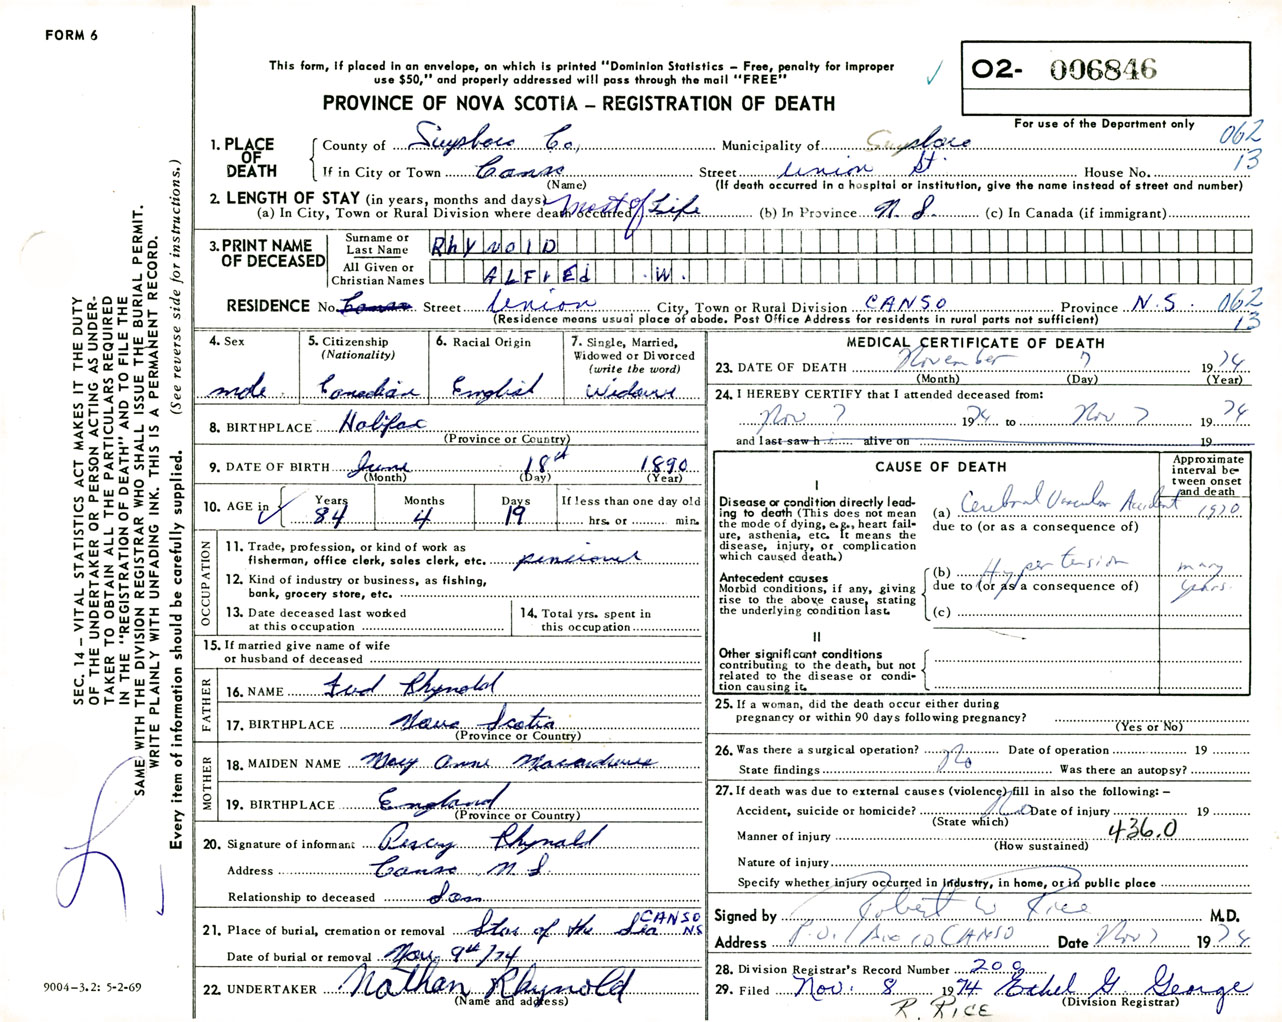 FORM 6
This form, if placed in an envelope, on which is printed "Dominion Statistics – Free, penalty for improper
use $50," and properly addressed will pass through the mail "FREE"
PROVINCE OF NOVA SCOTIA – REGISTRATION OF DEATH
O2- 006846
For use of the Department only
062
13
SEC. 14 – VITAL STATISTICS ACT MAKES IT THE DUTY
OF THE UNDERTAKER OR PERSON ACTING AS UNDER-
TAKER TO OBTAIN ALL THE PARTICULARS REQUIRED
IN THE "REGISTRATION OF DEATH" AND TO FILE THE
SAME WITH THE DIVISION REGISTRAR WHO SHALL ISSUE THE BURIAL PERMIT.
WRITE PLAINLY WITH UNFADING INK. THIS IS A PERMANENT RECORD.
Every item of information should be carefully supplied. (See reverse side for instructions.)
1. PLACE OF DEATH
County of Guysboro Co, Municipality of Guysboro
If in City or Town Canso Street Union St. House No.
(Name) (If death occurred in a hospital or institution, give the name instead of street and number)
2. LENGTH OF STAY (in years, months and days)
(a) In City, Town or Rural Division where death occurred Most of Life (b) In Province N.S. (c) In Canada (if immigrant)
3. PRINT NAME OF DECEASED
Surname or Last Name RhYNOlD
All Given or Christian Names ALFrEd W.
RESIDENCE No. Canso Street Union City, Town or Rural Division CANSO Province N.S. 062
(Residence means usual place of abode. Post Office Address for residents in rural parts not sufficient) 13
4. Sex male
5. Citizenship (Nationality) Canadian
6. Racial Origin English
7. Single, Married, Widowed or Divorced (write the word)
8. BIRTHPLACE Halifax
(Province or Country)
9. DATE OF BIRTH June 18th 1890
(Month) (Day) (Year)
10. AGE in Years 84 Months 4 Days 19 If less than one day old hrs. or min.
OCCUPATION
11. Trade, profession, or kind of work as
fisherman, office clerk, sales clerk, etc. pensioner
12. Kind of industry or business, as fishing,
bank, grocery store, etc.
13. Date deceased last worked
at this occupation
14. Total yrs. spent in
this occupation
15. If married give name of wife
or husband of deceased
FATHER
16. NAME Fred Rhynold
17. BIRTHPLACE Nova Scotia
(Province or Country)
MOTHER
18. MAIDEN NAME Mary Anne
19. BIRTHPLACE England
(Province or Country)
20. Signature of informant Percy Rhynold
Address Canso N.S.
Relationship to deceased Son
21. Place of burial, cremation or removal Star of the Sea CANSO NS
Date of burial or removal Nov 9th/74
22. UNDERTAKER Nathan Rhynold
(Name and address)
MEDICAL CERTIFICATE OF DEATH
23. DATE OF DEATH November 7 1974
(Month) (Day) (Year)
24. I HEREBY CERTIFY that I attended deceased from:
Nov 7 1974 to Nov 7 1974
and last saw h alive on 19
CAUSE OF DEATH
Approximate interval between onset and death
I
Disease or condition directly lead-
ing to death (This does not mean
the mode of dying, e.g., heart fail-
ure, asthenia, etc. It means the
disease, injury, or complication
which caused death.)
(a) Cerebral Vascular Accident 1970
due to (or as a consequence of)
Antecedent causes
Morbid conditions, if any, giving
rise to the above cause, stating
the underlying condition last.
(b) Hypertension many years.
due to (or as a consequence of)
(c)
II
Other significant conditions
contributing to the death, but not
related to the disease or condi-
tion causing it.
25. If a woman, did the death occur either during
pregnancy or within 90 days following pregnancy?
(Yes or No)
26. Was there a surgical operation? No Date of operation 19
State findings Was there an autopsy?
27. If death was due to external causes (violence) fill in also the following: –
Accident, suicide or homicide? No Date of injury 19
(State which)
Manner of injury 436.0
(How sustained)
Nature of injury
Specify whether injury occurred in Industry, in home, or in public place
Signed by Robert W Rice M.D.
Address P.O. CANSO Date Nov 7 1974
28. Division Registrar's Record Number 200
29. Filed Nov. 8 1974 Ethel G George
(Division Registrar)
R. RICE
9004-3.2: 5-2-69